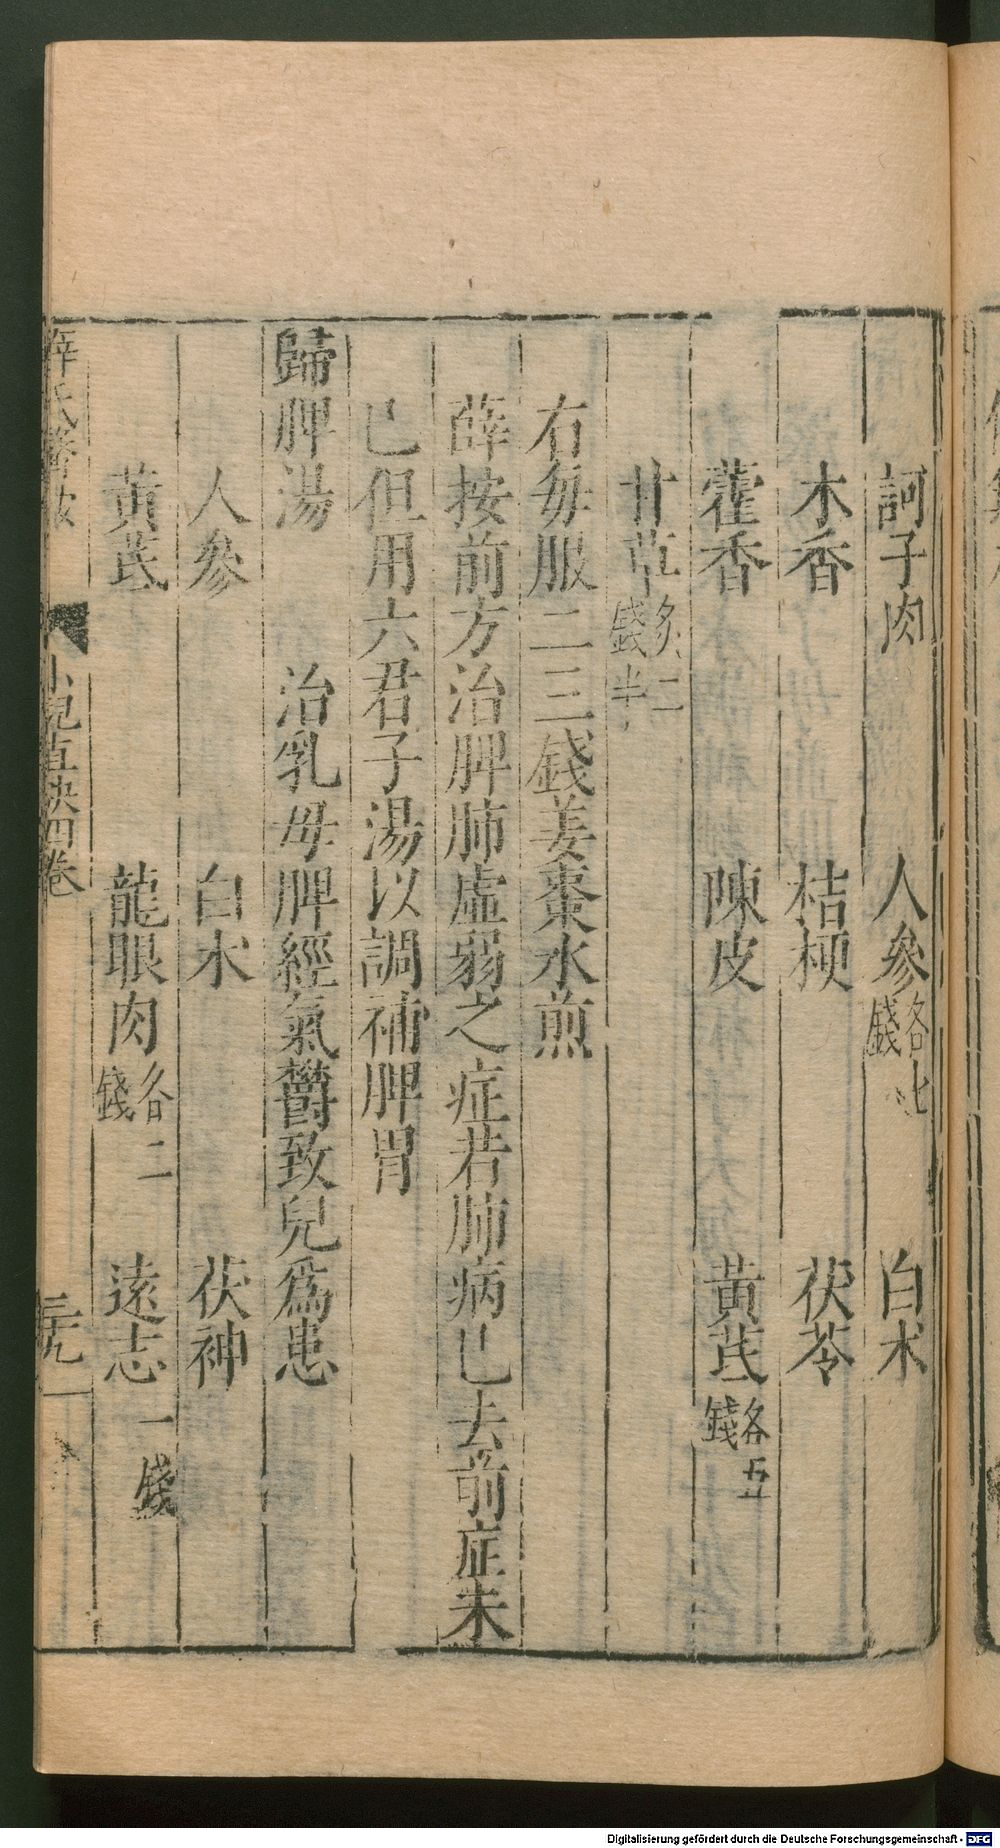 訶子肉 人參各七錢 白术
木香 桔梗 茯苓
藿香 陳皮 黃芪各五錢
甘草炙二錢半
右每服二三錢姜棗水煎
薛按前方治脾肺虛弱之症若肺病已去前症未
已但用六君子湯以調補脾胃
歸脾湯 治乳母脾經氣欝致兒爲患
人參 白朮 茯神
黃芪 龍眼肉各二錢 遠志一錢
薛氏醫按 小兒直訣四卷
Digitalisierung gefördert durch die Deutsche Forschungsgemeinschaft - DFG